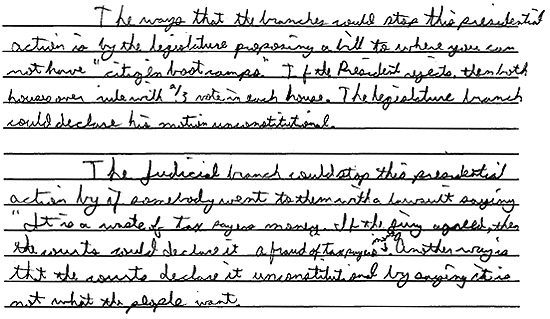 The ways that the branches could stop this presidential
action is by the legislature proposing a bill to where you can
not have "citizen boot camps." If the President rejects, then both
houses over rule with 2/3 vote in each house. The legislature branch
could declare his motion unconstitutional.
The Judicial branch could stop this presidential
action by if somebody went to them with a lawsuit saying
"It is a waste of tax payers money. If the jury agreed, then
the courts could declare it a fraud of tax payers money. Another way is
tht the courts declare it unconstitutional by saying it is
not what the people want.